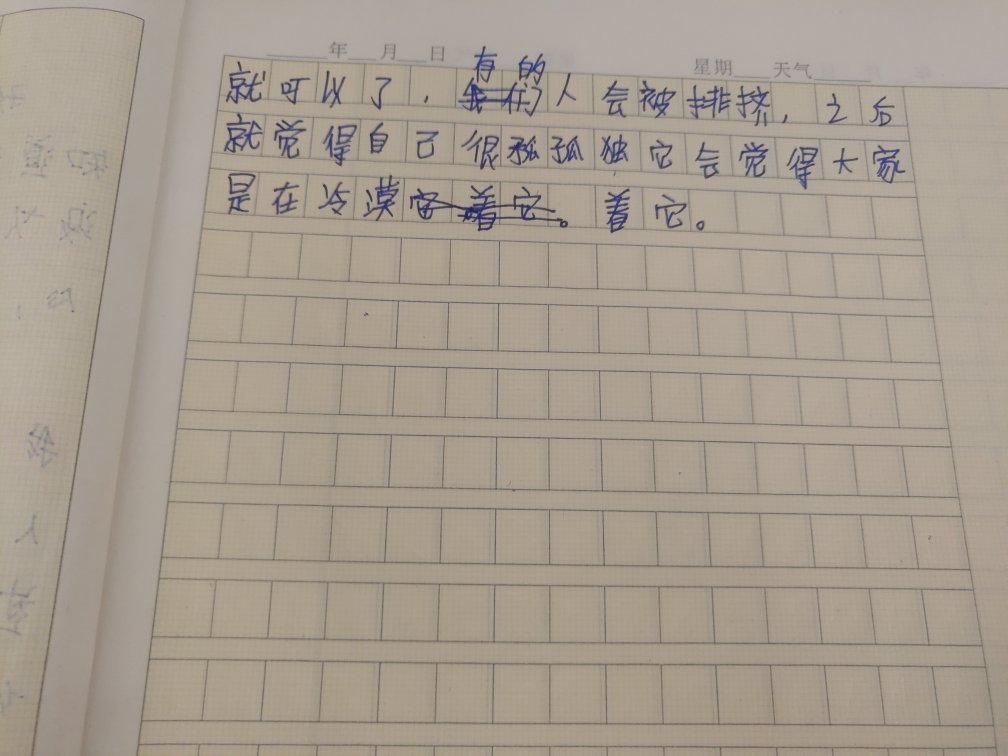 年 月 日 星期 天气
有的
就可以了，我们人会被排挤，之后
就觉得自己很孤孤独它会觉得大家
是在冷漠它着它。着它。